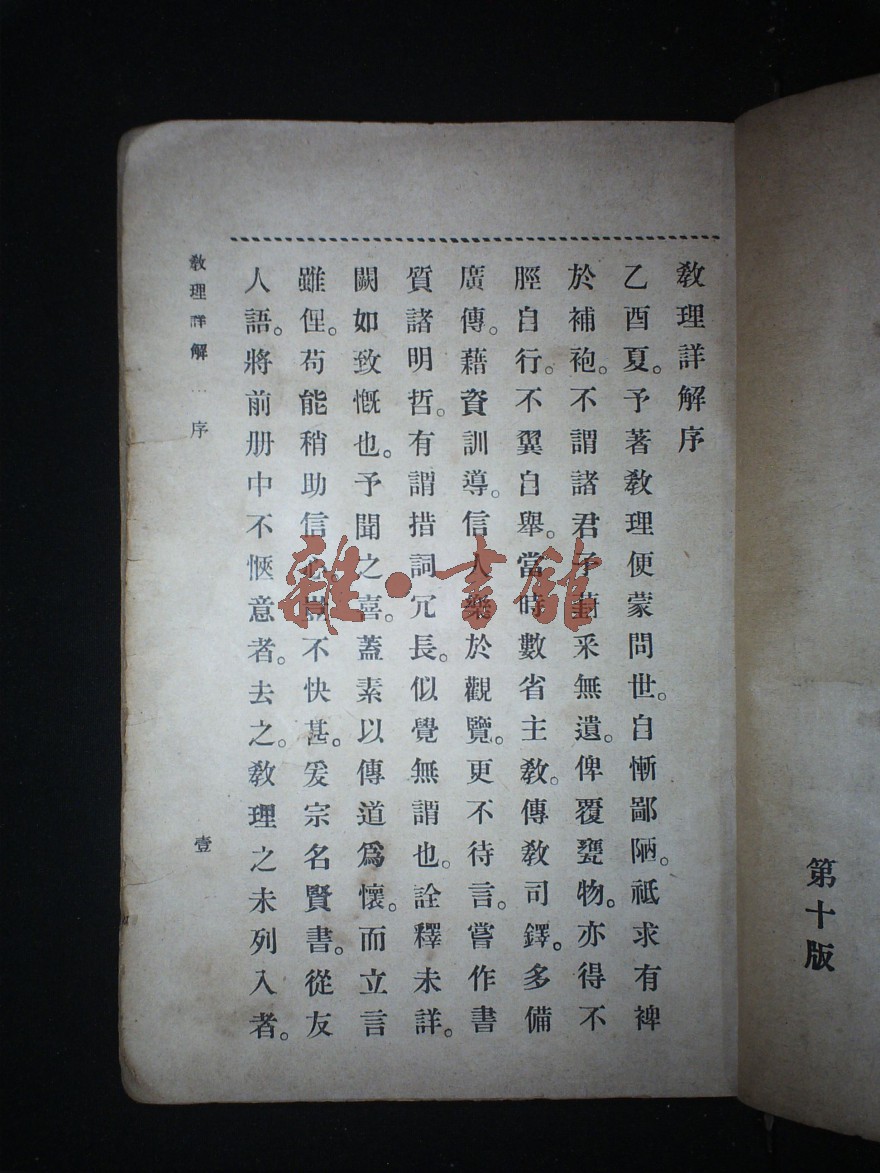 教理詳解序
乙酉夏。予著教理便蒙問世。自慚鄙陋。祗求有裨
於補袍。不謂諸君子葑釆無遺。俾覆甕物。亦得不
脛自行。不翼自舉。當時數省主教。傳教司鐸。多備
廣傳。藉資訓導。信人樂於觀覽。更不待言。嘗作書
質諸明哲。有謂措詞冗長。似覺無謂也。詮釋未詳。
闕如致慨也。予聞之喜。蓋素以傳道爲懷。而立言
雖俚。茍能稍助信心。豈不快甚。爰宗名賢書。從友
人語。將前册中不愜意者。去之。教理之未列入者。
教理詳解 序
壹
第十版
雜·書館